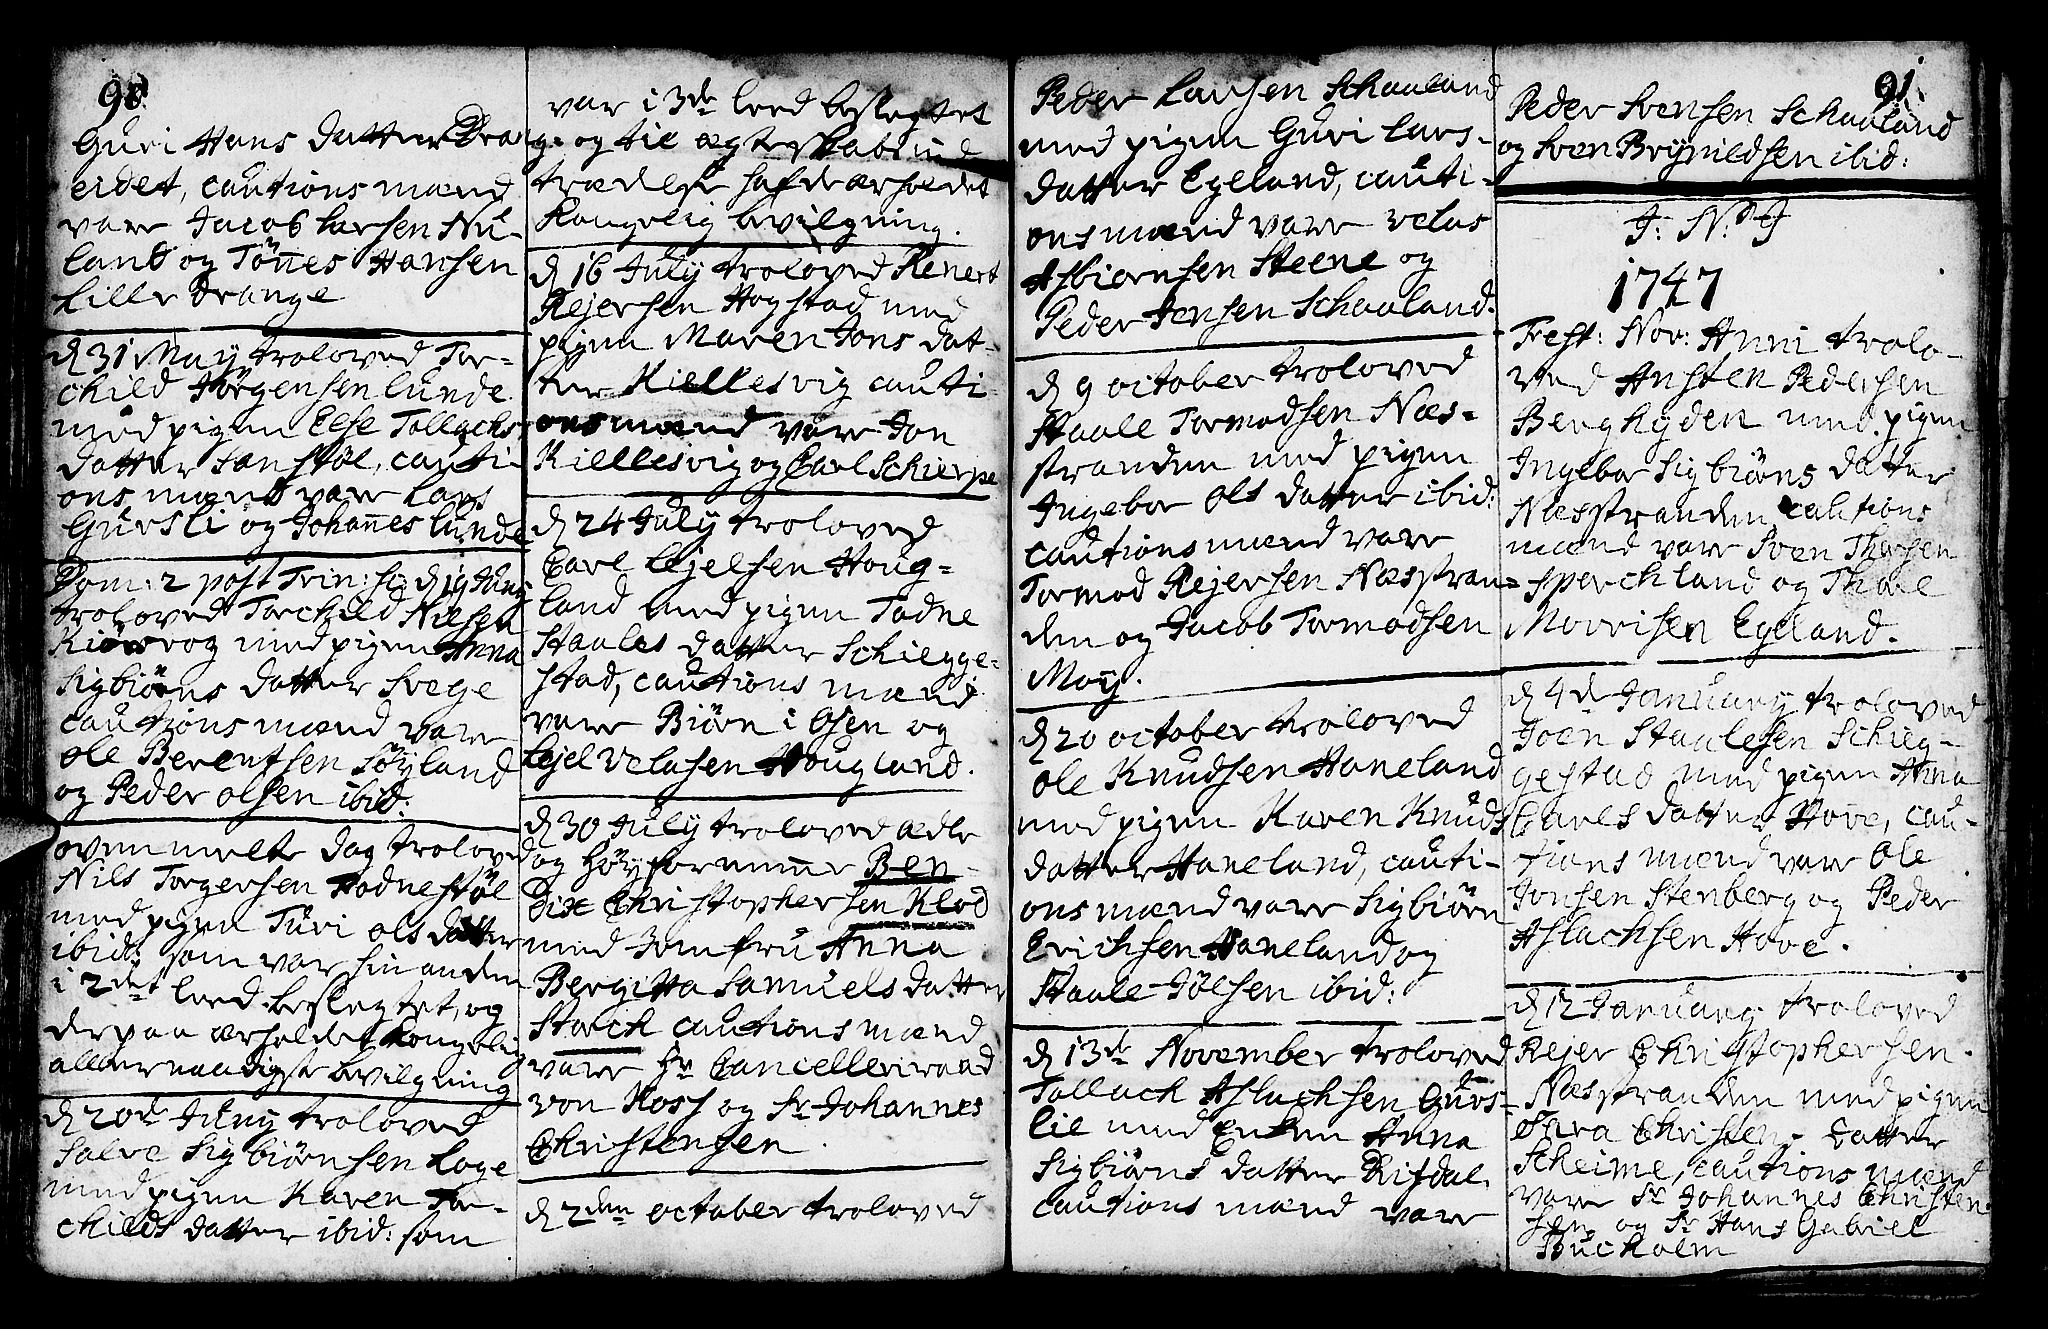 90.
Guri Hans datter Dra
eidet, cautions mænd
vare Jacob Larsen Nu-
land og Tönes Hansen
Lille Drange
d 31 May troloved Tor-
child Jörgensen Lunde
med pigen Else Tollachs
datter Janstöl, cauti-
ons mænd vare Lars
Gursli og Johannes Lunde
Dom: 2 post Trin: d 19 Juny
troloved Torchild Nilsen
Kiörvog med pigen Anna
Sigbiörns datter Svege
cautions mænd vare
Ole Berentsen Töyland
og Peder Olsen ibid:
oven melte dag troloved
Nils Torgersen Hodnestöl
med pigen Turi Ols datter
ibid: som var hinanden
i 2det leed beslegtet, og
derpaa ærholdet Kongelig
allernaadigste bevilgning
d 20de Juny troloved
Salve Sigbiörnsen Loge
med pigen Karen Tor-
childs datter ibid: som
var i 3de leed beslegtet
g. og til ægteskabs ind
trædelse hafde ærholdet
Kongelig bevilgning.
d 16 July troloved Renert
Rejersen Hogstad med
pigen Maren Jons dat-
ter Kiellesvig cauti-
ons mænd vare Jon
Kiellesvig og Carl Schierpe
d 24 July troloved
Carl Ejelsen Houg-
land med pigen Todne
Staales datter Schiegge-
stad, cautions mænd
vare Biörn i Osen og
Ejel Velasen Hougland.
d 30 July troloved ædle
og Höyfornemme Ben-
dix Christophersen Klod
med Jomfru Anna
Bergitta Samuels datter
Storck cautions mænd
vare Hr Cancelleriraad
von Koss og Sr Johannes
Christensen
d 2den October troloved
Peder Larsen Schaaland
med pigen Guri Lars-
datter Egeland, cauti-
ons mænd vare Velas
Asbiornsen Steene og
Peder Jensen Schaaland.
d 9 October troloved
Staale Tormodsen Næs-
stranden med pigen
Ingebor Ols datter ibid:
cautions mænd vare
Tormod Rejersen Næsstran-
den og Jacob Tormodsen
Moy.
d 20 October troloved
Ole Knudsen Haneland
med pigen Karen Knuds
datter Haneland, cauti-
ons mænd vare Sigbiörn
Erichsen Haneland og
Staale Jölsen ibid:
d 13de November troloved
Tollach Aslachsen Gurs-
lie med Enken Anna
Sigbiörns datter Rifdal.
cautions mænd vare
91.
Peder Svensen Schaaland
og Sven Brynildsen ibid:
J: N: J
1747
Fest: Nov: Anni trolo-
ved Ansten Pedersen
Berghyden med pigen
Ingebor Sigbiörns datter
Næsstranden, cautions
mænd vare Sven Thorsen
Sperchland og Thore
Morrisen Egeland.
d 4de January troloved
Joen Staalesen Schieg-
gestad med pigen Anna
Carls datter Hove, cau-
tions mænd vare Ole
Jonsen Stenberg og Peder
Aslachsen Hove.
d 12 January troloved
Rejer Christophersen
Næsstranden med pigen
Sara Christens datter
Scheime, cautions mænd
vare Sr Johannes Christen
sen og Sr Hans Gabriel
Bucholm